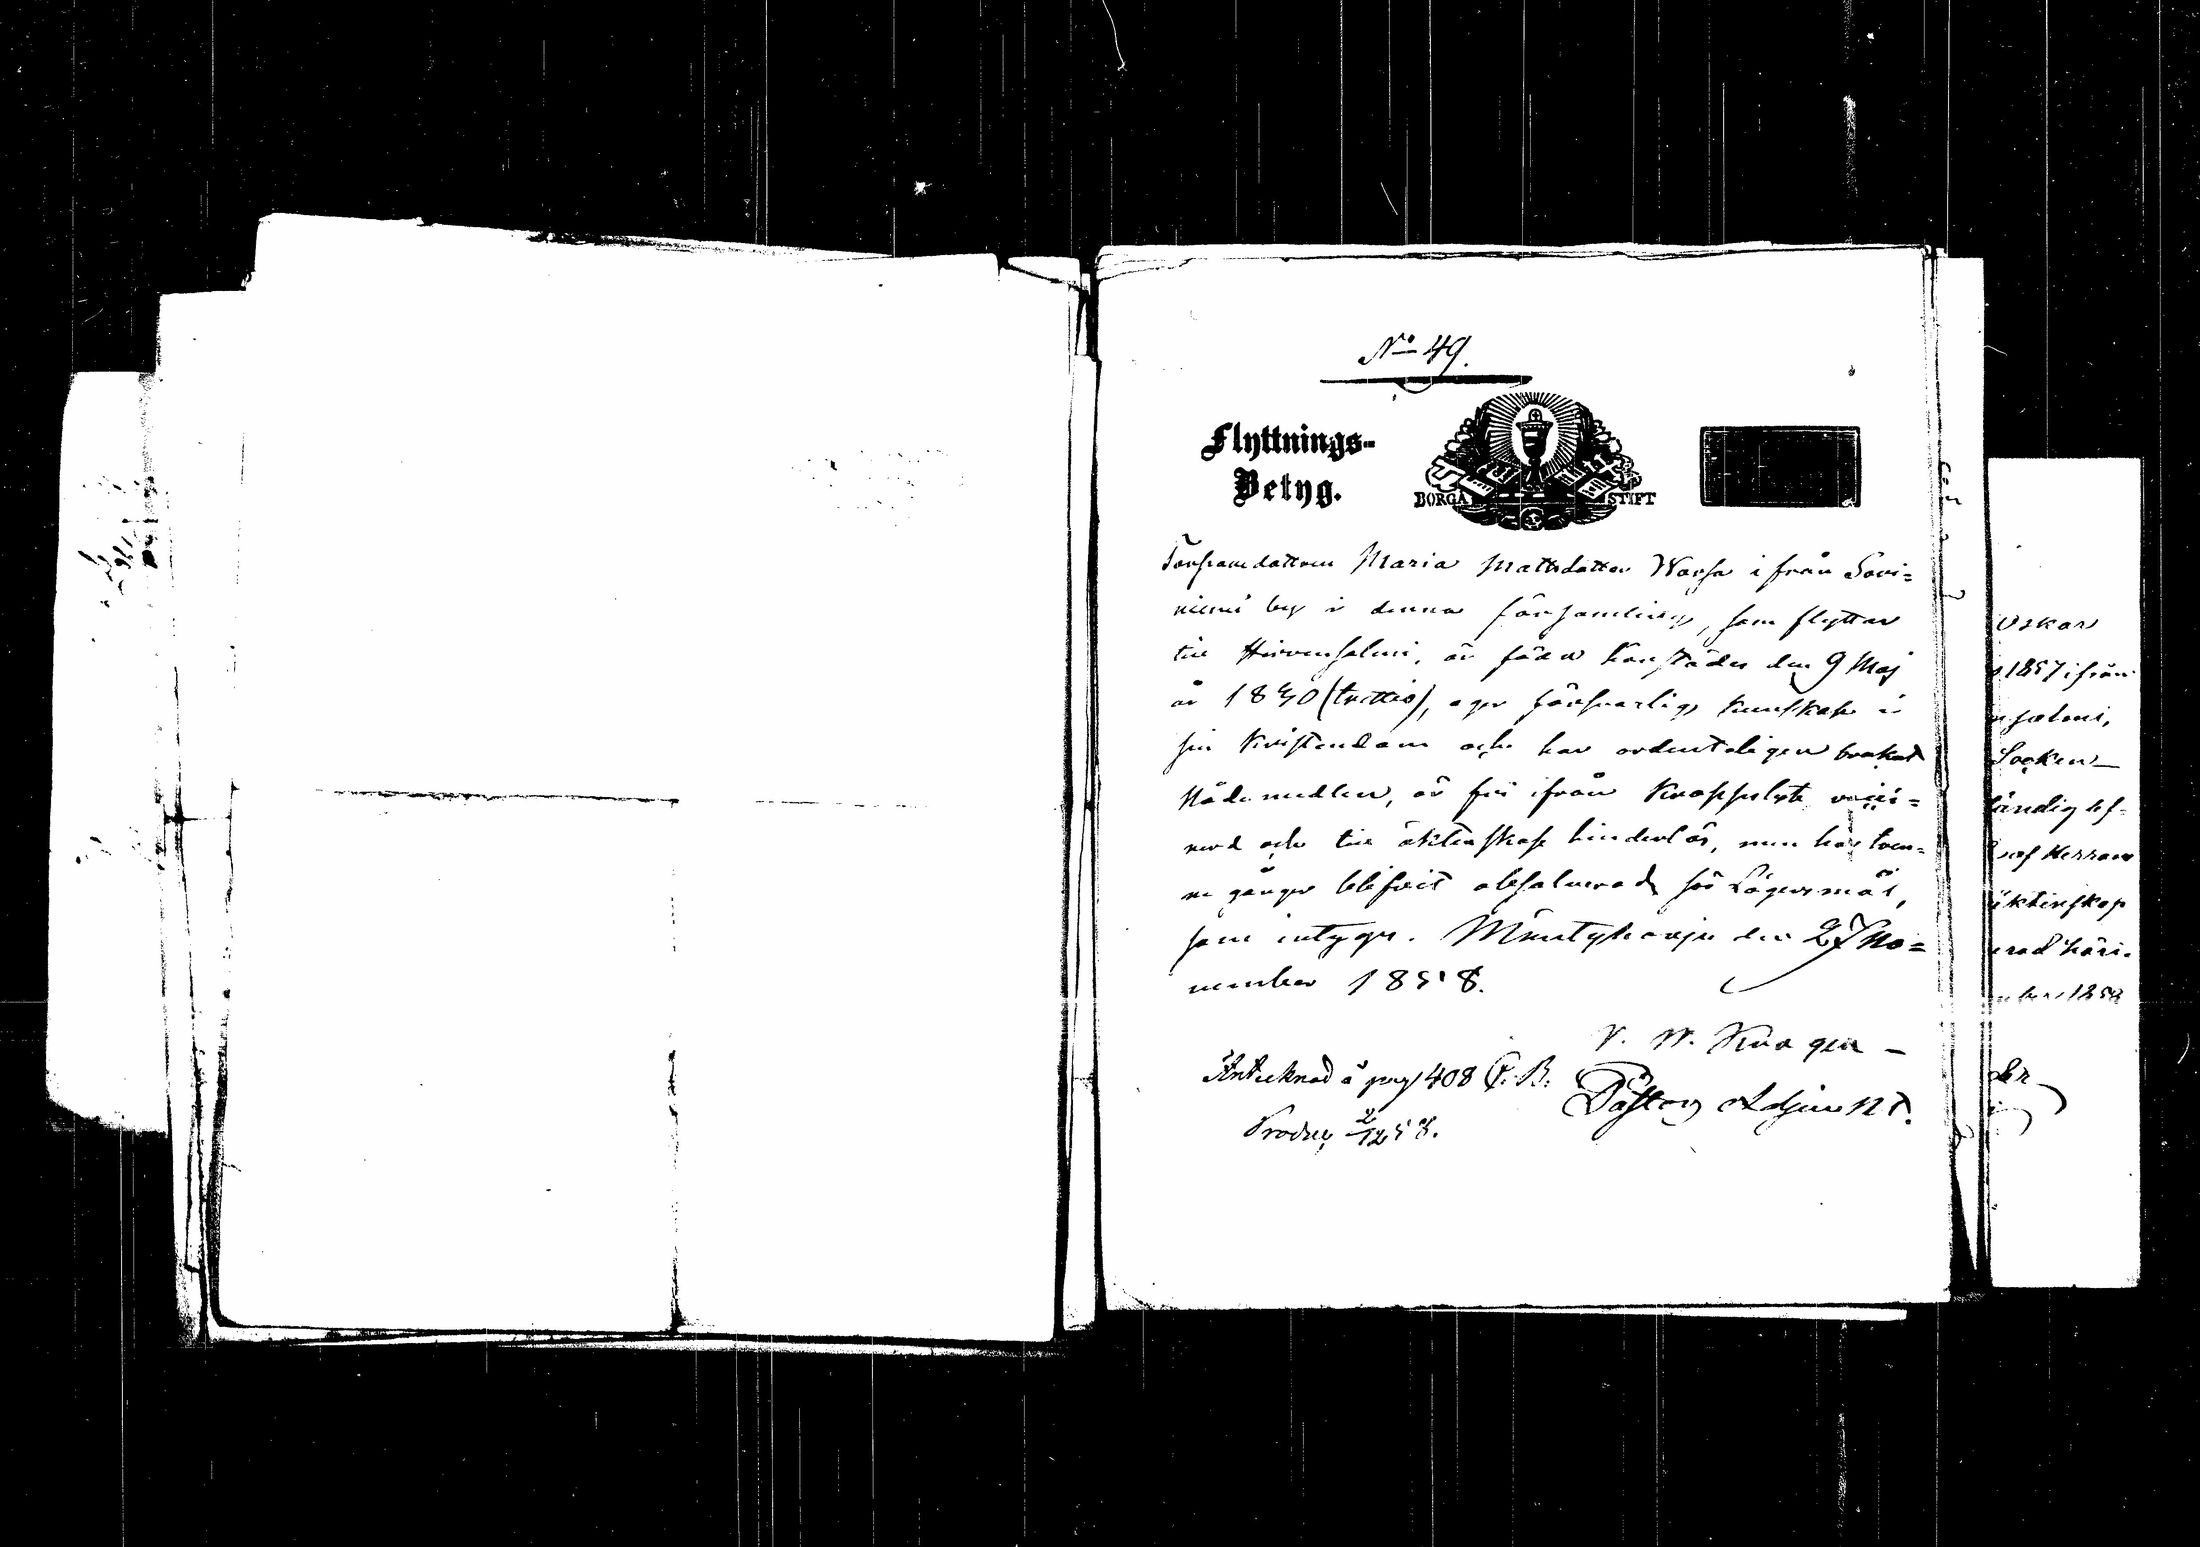 No 49.
Flyttnings-
Betyg.
BORGÅ STIFT
Torparedottren Maria Mattsdotter Warsa ifrån Savi=
niemi by i denna församling, som flyttar
till Hirvensalmi, är född härstädes den 9 Maj
år 1830 (trettio), eger försvarlig kunskap i
sin Kristendom och har ordenteligen brukat
Nådemedlen, är fri ifrån Kroppslyte, vacci=
nerad och till äktenskap hinderlös, men har tven=
ne gånger blifvit absolverad för Lägersmål,
som intygar. Mäntyharju den 27 No=
vember 1858.
V. W. Krogen
Pastors Adjunkt.
Antecknad å pag 408 C. B.
Produc 2/12 58.
Oskar
1857 ifrån
salmi,
Socken
ständig bf-
af Herrans
äktenskap
rad häri-
ber 1858